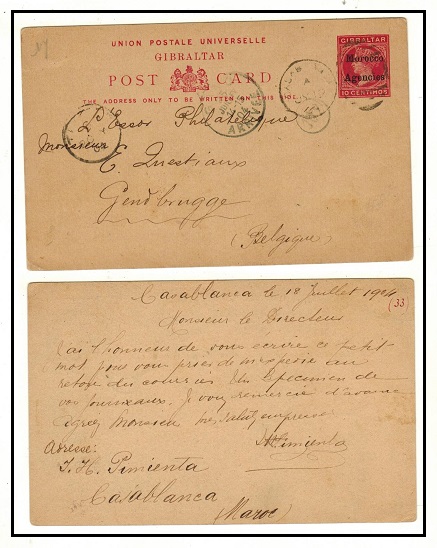 UNION POSTALE UNIVERSELLE
GIBRALTAR
POST CARD
THE ADDRESS ONLY TO BE WRITTEN ON THIS SIDE
GIBRALTAR
Morocco
Agencies
10 CENTIMOS
ARRIVÉE
L'Essor Philatélique
Monsieur
E. Questiaux
Gendbrugge
(Belgique)
Casablanca le 18 Juillet 1904
(33)
Monsieur le Directeur
J'ai l'honneur de vous écrire ce petit
mot pour vous prier de
retour du courrier Un Specimen de
vos journaux. Je vous remercie d'avance
Agréez Monsieur mes salut empressé
Pimienta
Adresse:
J. H. Pimienta
Casablanca
(Maroc)